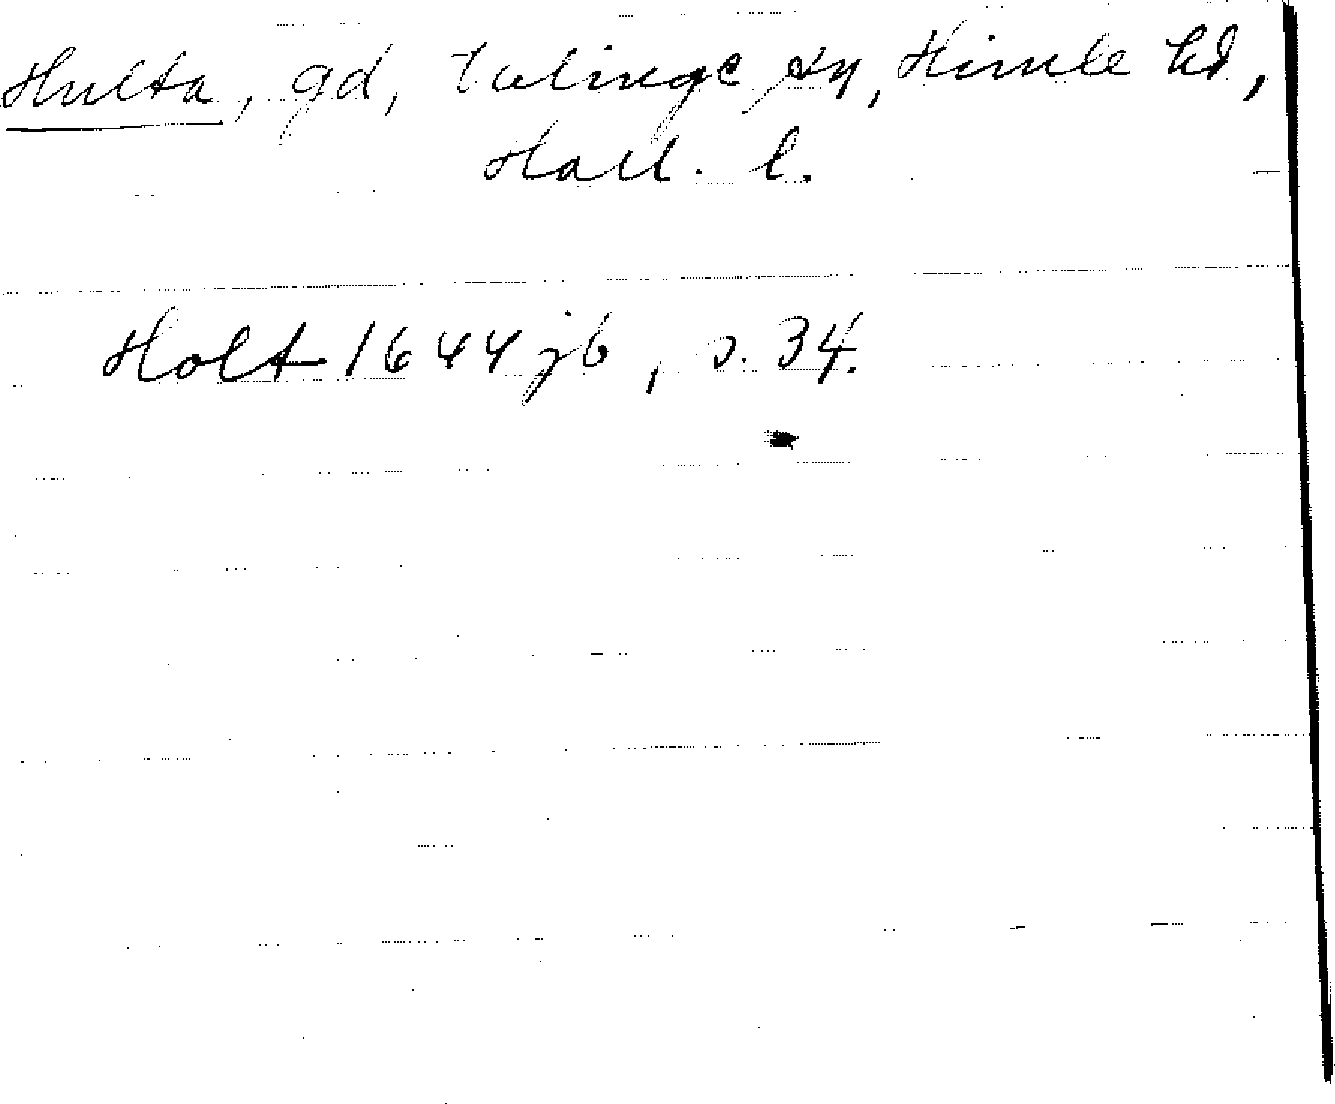 Hulta, gd, Valinge sn, Himle hd,
Hall. l.
Holt 1644 jb, s. 34.